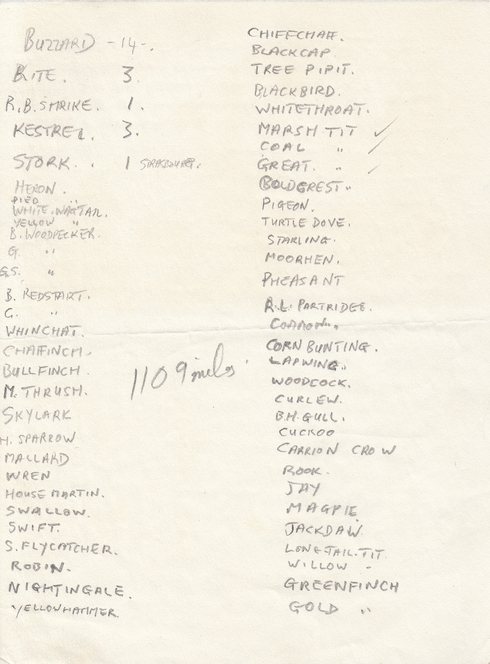 BUZZARD -14-.
KITE. 3.
R.B. SHRIKE. 1.
KESTREL. 3.
STORK. . 1 STRASBOURG.
HERON.
PIED "
WHITE. WAGTAIL.
YELLOW "
B. WOODPECKER.
G. "
G.S. "
B. REDSTART.
C. "
WHINCHAT.
CHAFFINCH.
BULLFINCH.
M. THRUSH.
SKYLARK
H. SPARROW
MALLARD
WREN
HOUSE MARTIN.
SWALLOW.
SWIFT.
S. FLYCATCHER.
ROBIN.
NIGHTINGALE.
YELLOWHAMMER.
1109 miles.
CHIFFCHAFF.
BLACKCAP.
TREE PIPIT.
BLACKBIRD.
WHITETHROAT.
MARSH TIT ✓
COAL " ✓
GREAT. " ✓
GOLDCREST "
PIGEON.
TURTLE DOVE.
STARLING.
MOORHEN.
PHEASANT
R.L. PARTRIDGE.
COMMON "
CORN BUNTING.
LAPWING.
WOODCOCK.
CURLEW.
B.H. GULL.
CUCKOO
CARRION CROW
ROOK.
JAY
MAGPIE
JACKDAW
LONG TAIL. TIT.
WILLOW "
GREENFINCH
GOLD "